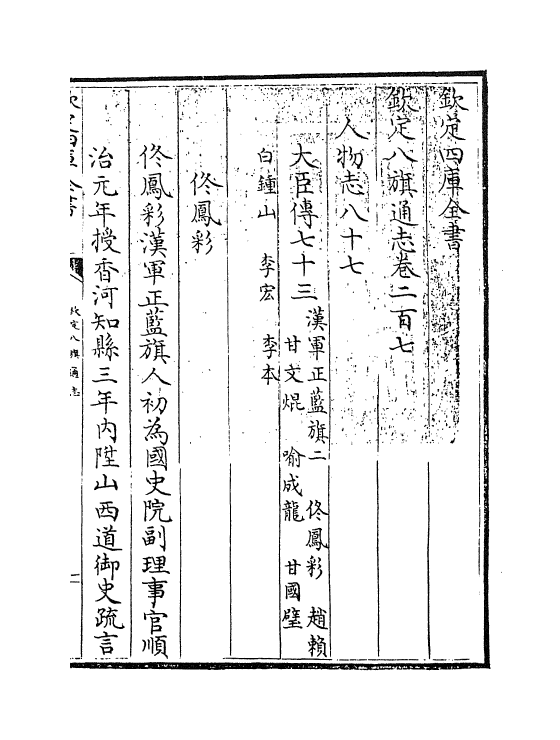 欽定四庫全書
欽定八旗通志卷二百七
人物志八十七
大臣傳七十三
漢軍正藍旗二 佟鳳彩 趙賴
甘文焜 喻成龍 甘國璧
白鍾山 李宏 李本
佟鳳彩
佟鳳彩漢軍正藍旗人初為國史院副理事官順
治元年授香河知縣三年內陞山西道御史疏言
欽定四庫全書
欽定八旗通志